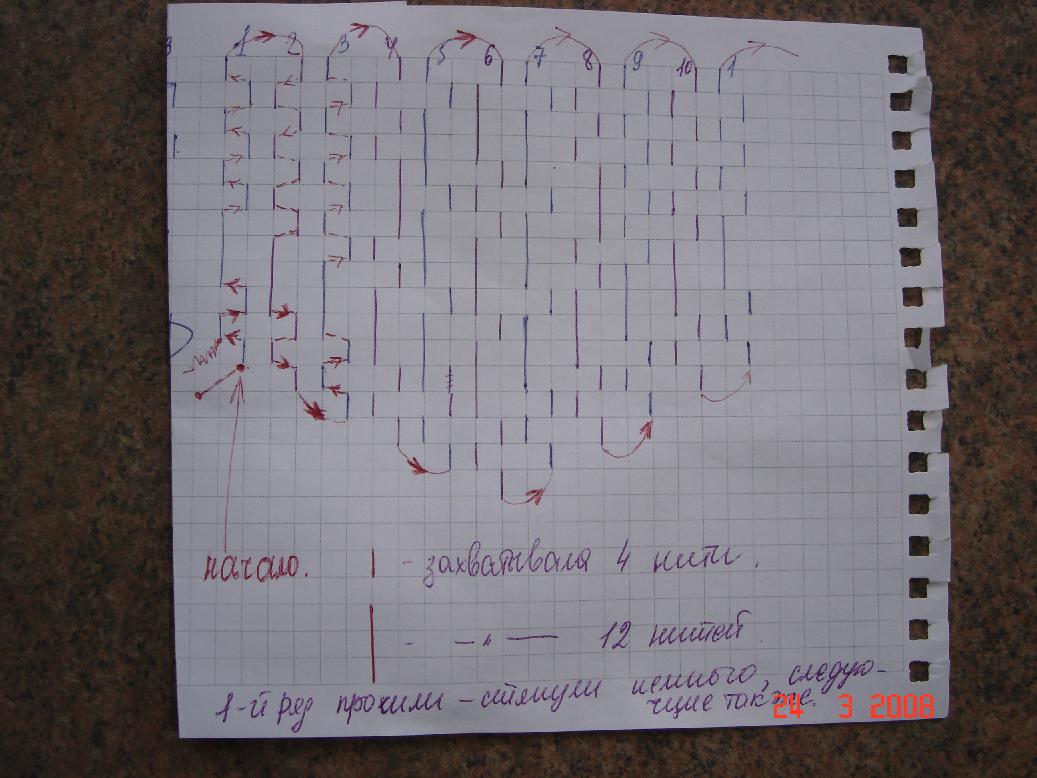 1 2 3 4 5 6 7 8 9 10 1
начало.
- захватывала 4 нити.
- —"— 12 нитей.
1-й ряд прошили - стянули немного, следую-
щие также.
24 3 2008